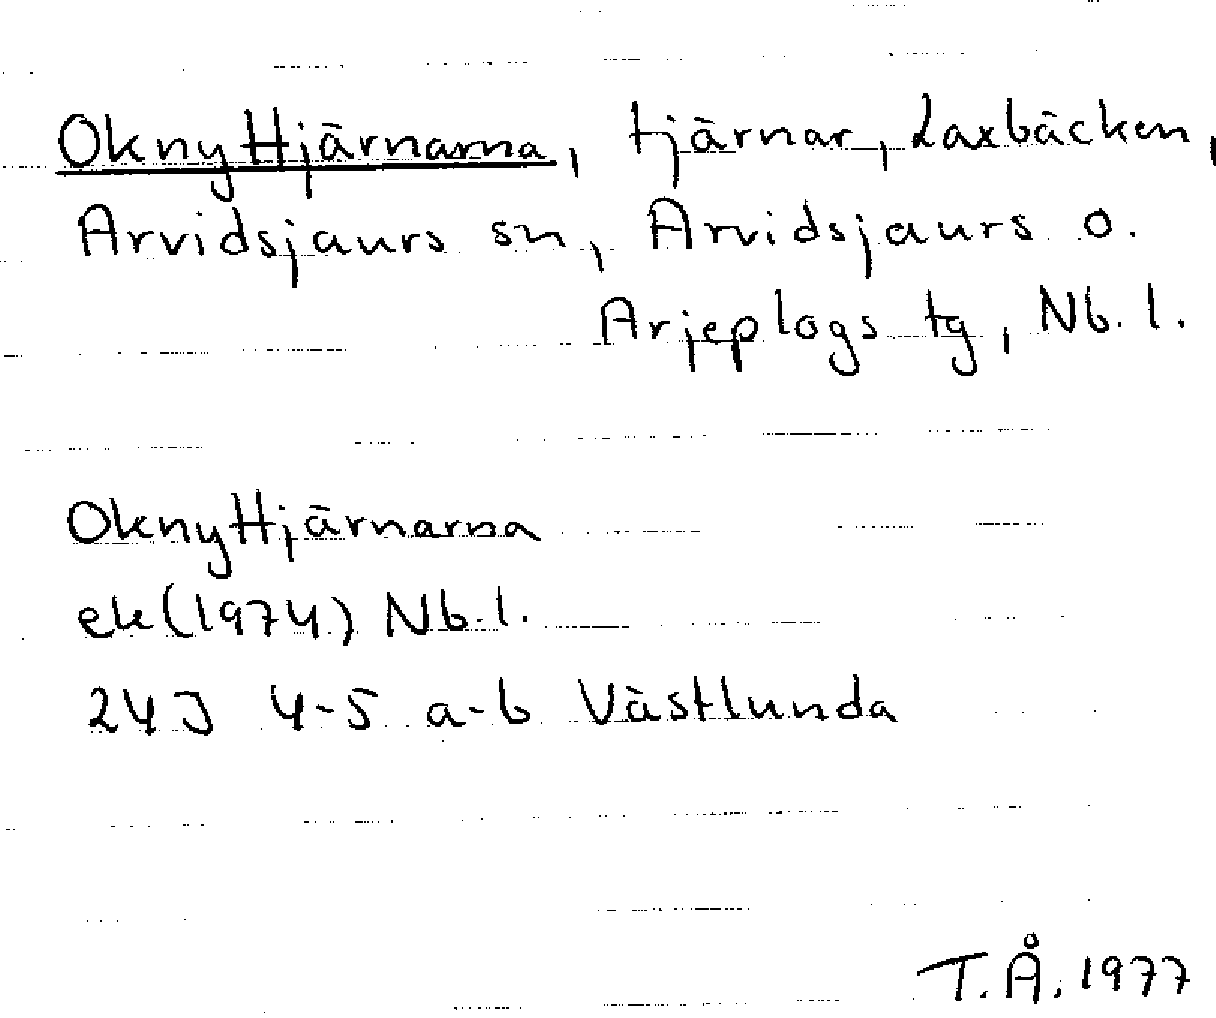 Oknyttjärnarna, tjärnar, Laxbäcken,
Arvidsjaurs sn, Arvidsjaurs o.
Arjeplogs tg, Nb. l.
Oknyttjärnarna
ek (1974) Nb. l.
24J 4-5 a-b Västlunda
T.Å. 1977